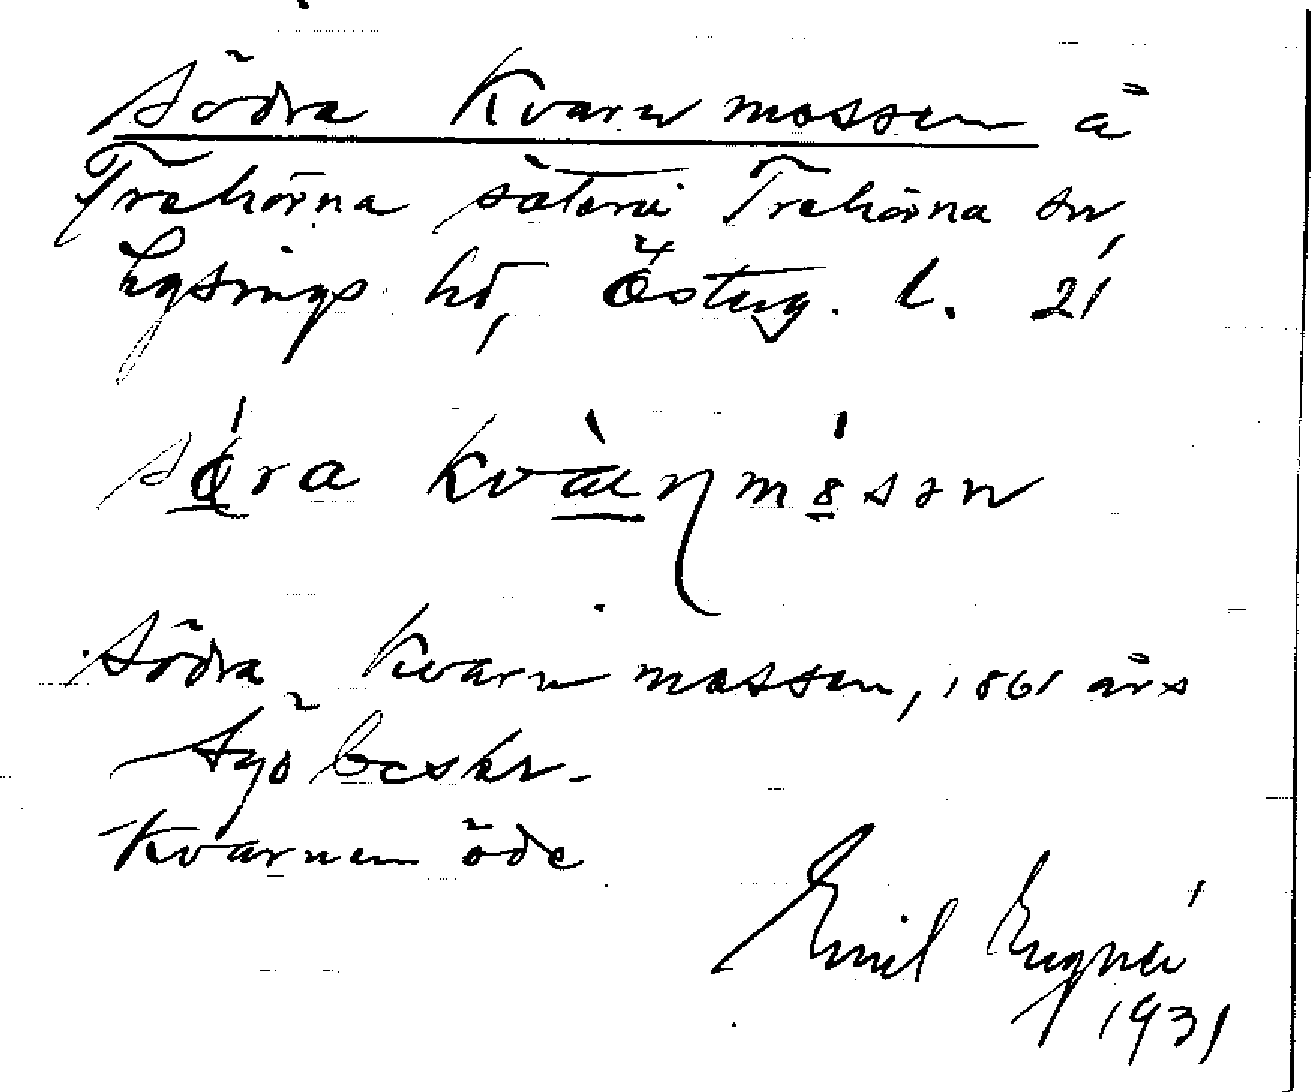 Södra Kvarnmossen å
Trehörna säteri Trehörna sn,
Lysings hd, Österg. l. 21
Södra Kvarnmossen, 1861 års
Sjöbeskr.
Kvarnen öde
Emil
1931